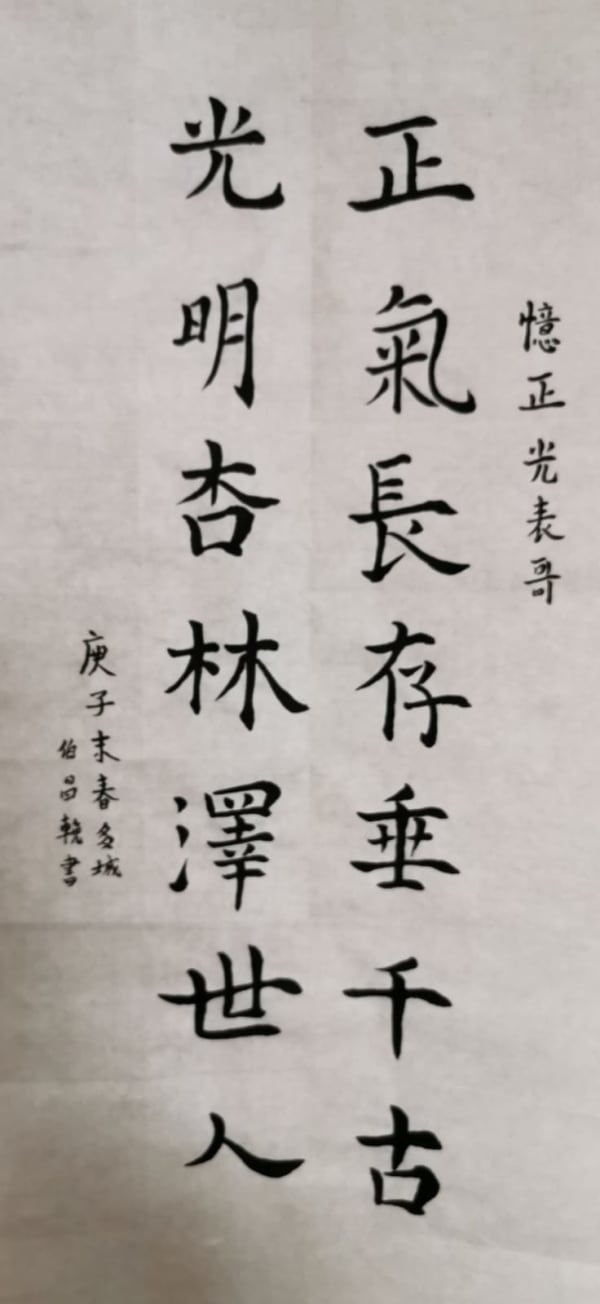 憶正光表哥
正氣長存垂千古
光明杏林澤世人
庚子末春多城
伯昌 書